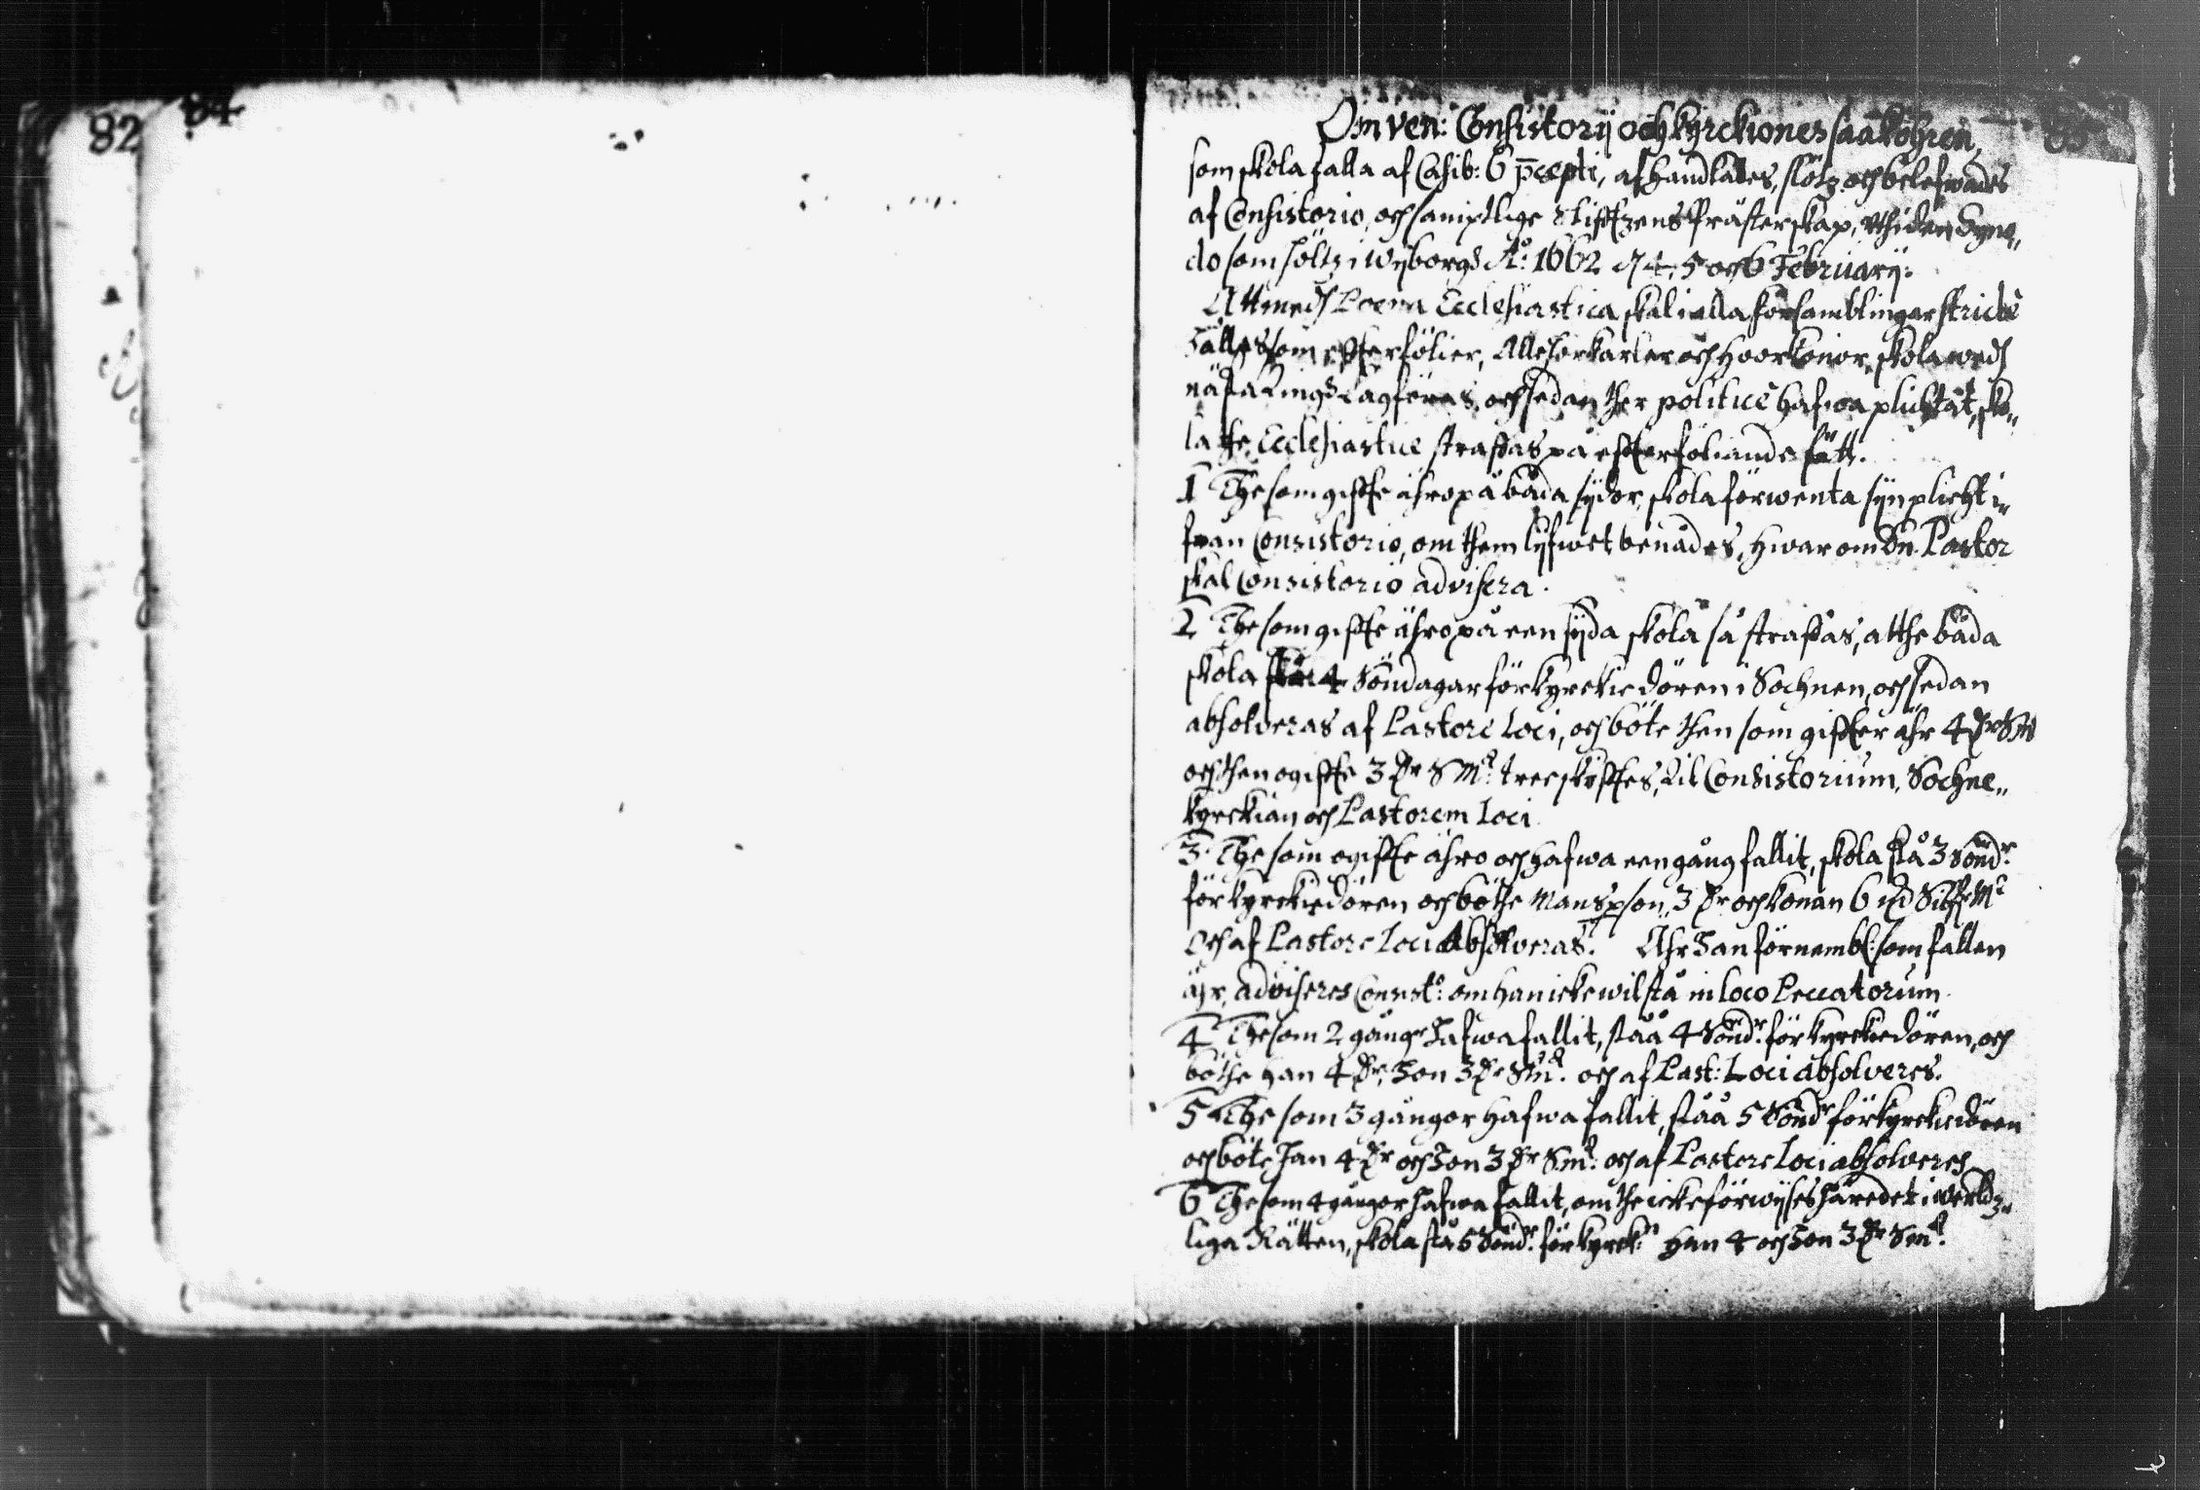 82
84
Om Ven: Consistorij och kyrckiones saaköhren,
som skola falla af Casib: 6 p̄cepti, afhandlades, slötz och belefwades
af Consistorio, och samptlige Stifftzens Prästerskap, uthi den Syno„
do som höltz i Wijborg Aõ: 1662 d 4, 5 och 6 Februarij:
Att medh Poena Ecclesiastica skal i alla församblingar stricte
hålles som effterfölier, Alle horkarlar och Hoorkonor, skola wedh
näste Ting Lagföras, och sedan ther politicè hafwa plichtat, sko„
la the Ecclesiasticè straffas på effterföliande sätt.
1 The som giffte ähro på båda sydor, skola förwenta syn plicht i„
från Consistorio, om them lyfwet benådes, hwarom Dn. Pastor
skal Consistorio advisera.
2 The som giffte ähro på een syda skola så straffas, at the båda
skola stå 4 Söndagar för kyrckiedören i Sochnen, och sedan
absolveras af Pastore Loci, och böte then som giffter ähr 4 Dr SM
och then ogiffte 3 Dr S Mt: treeskifftes, Til Consistorium, Sochne„
kyrckian och Pastorem Loci
3. The som ogiffte ähro och hafwa een gång fallit, skola stå 3 Sönd:r
för kyrckiedören och böthe Mansp̱son, 3 Dr och konan 6 Silff Mt
Och af Pastore Loci Absolveras. Ähr han förnembl: som fallen
ähr, adviseres Consisto: om han icke wil stå in loco Peccatorum.
4 The som 2 gångr hafwa fallit,ståå 4 Sönd:r för kyrckiedören, och
böthe han 4 Dr, hon 3 Dr Smt: och af Past: Loci absolveres.
5 The som 3 gångor hafwa fallit, ståå 5 Söndr för kyrckiedören
och böte han 4 Dr och hon 3 Dr Smt: och af Pastore Loci absolveres
6 The som 4 gångor hafwa fallit, om the icke förwyses häredet i werldz„
liga Rätten, skola stå 5 Sönd:r för kyrck:n han 4 och hon 3 Dr Smt.